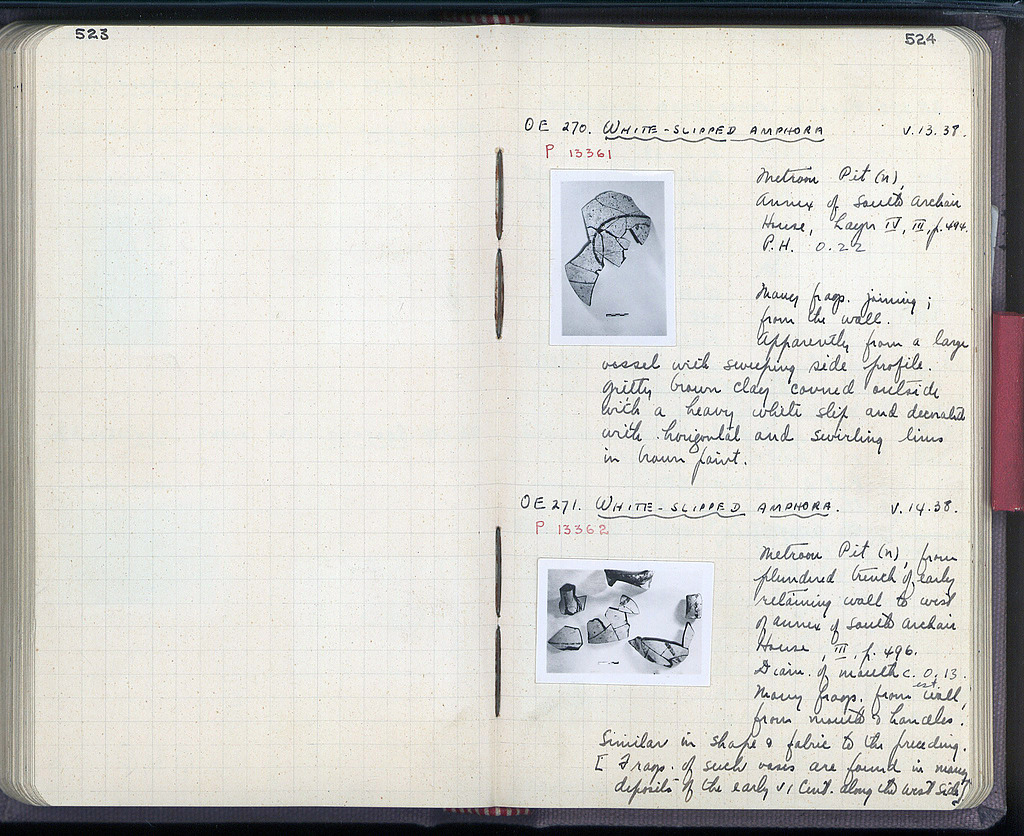 523
524
OE 270. WHITE-SLIPPED AMPHORA V.13.38.
P 13361
Metroon Pit (n),
Annex of South Archaic
House, Layer IV, III, p. 494.
P.H. 0.22
Many frags. joining;
from the wall.
Apparently from a large
vessel with sweeping side profile.
Gritty brown clay covered outside
with a heavy white slip and decorated
with horizontal and swirling lines
in brown paint.
OE 271. WHITE-SLIPPED AMPHORA. V.14.38.
P 13362
Metroon Pit (n), from
plundered trench of early
retaining wall to west
of annex of South Archaic
House, III, p. 496.
Diam. of mouth c. 0.13.
est.
Many frags. from wall,
from mouth & handles.
Similar in shape & fabric to the preceding.
[Frags. of such vases are found in many
deposits of the early VI Cent. along the West Side]